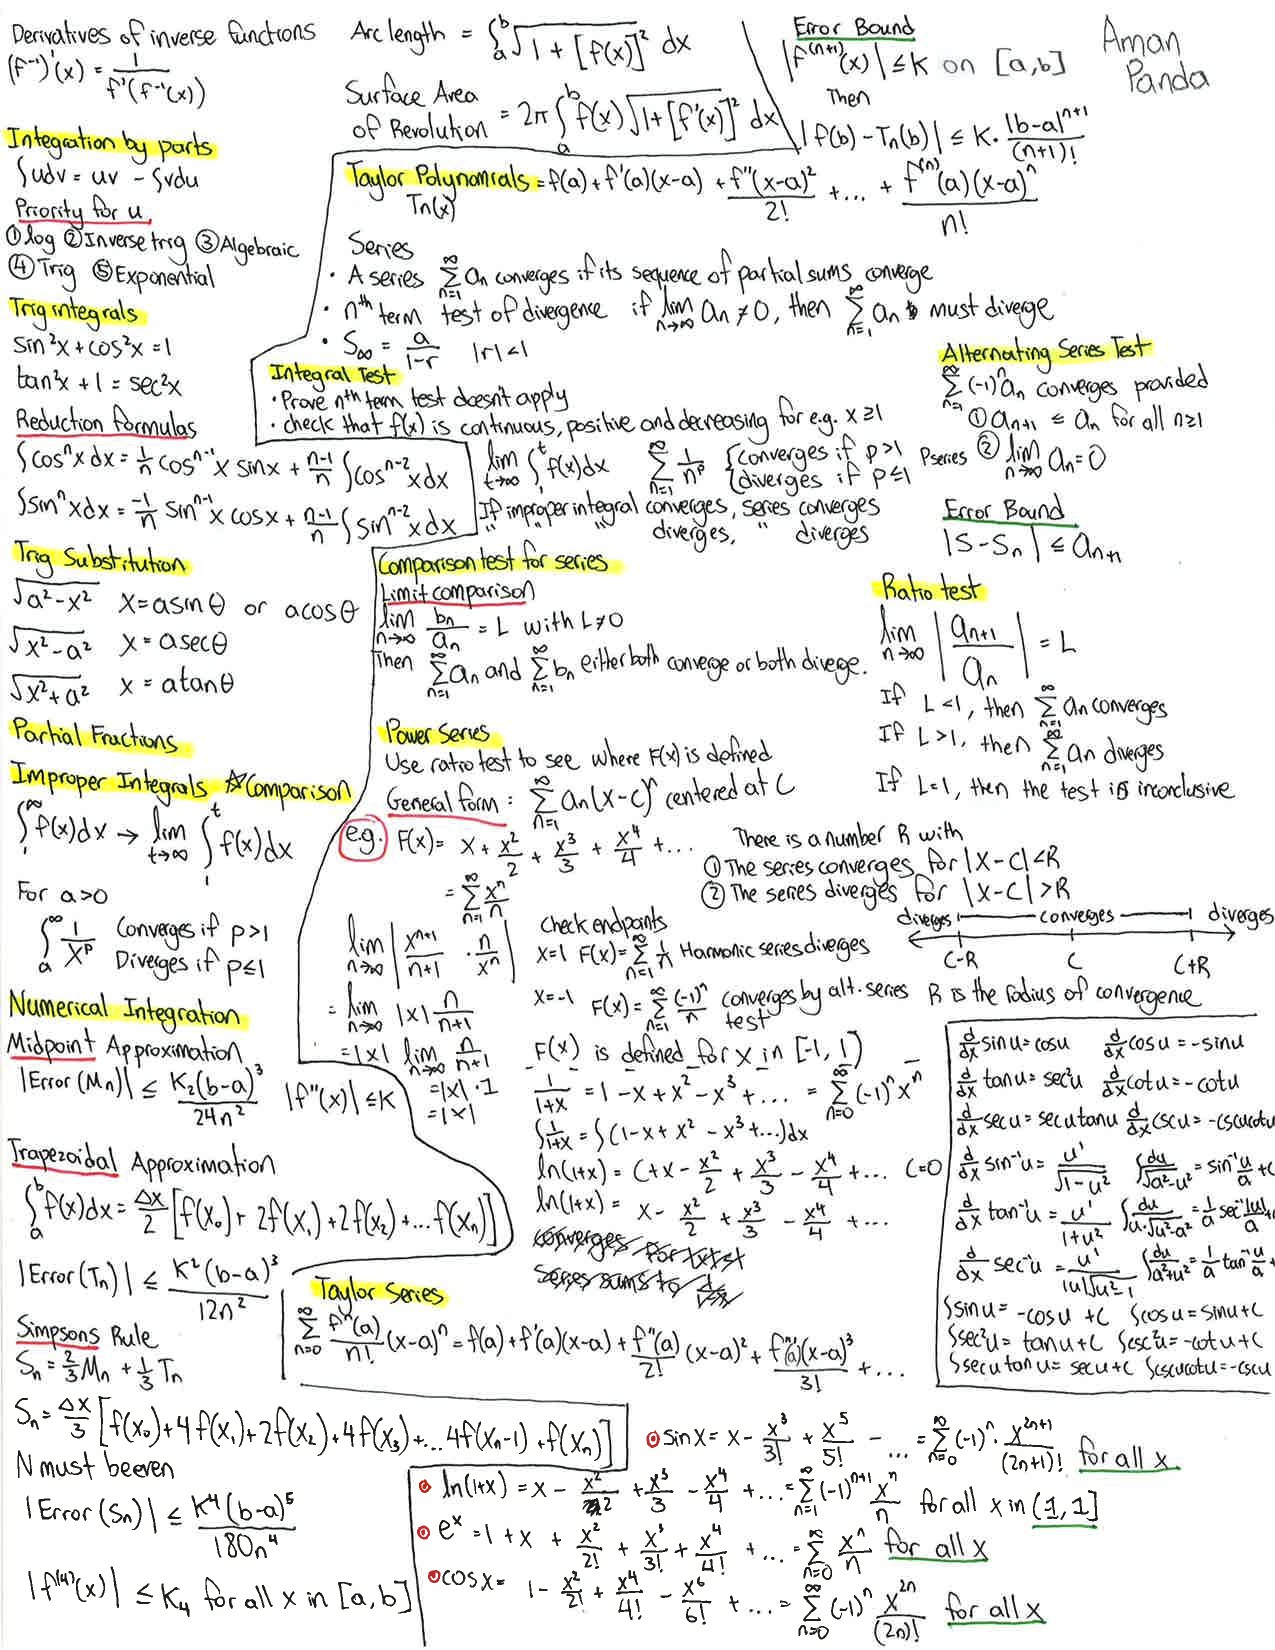 Derivatives of inverse functions
(f⁻¹)'(x) = 1/f'(f⁻¹(x))
Integration by parts
∫udv = uv - ∫vdu
Priority for u
① log ② Inverse trig ③ Algebraic
④ Trig ⑤ Exponential
Trig integrals
sin²x + cos²x = 1
tan²x + 1 = sec²x
Reduction formulas
∫cosⁿx dx = 1/n cosⁿ⁻¹x sinx + (n-1)/n ∫cosⁿ⁻²x dx
∫sinⁿx dx = -1/n sinⁿ⁻¹x cosx + (n-1)/n ∫sinⁿ⁻²x dx
Trig Substitution
√(a²-x²) x = a sinθ or a cosθ
√(x²-a²) x = a secθ
√(x²+a²) x = a tanθ
Partial Fractions
Improper Integrals ☆Comparison
∫₁^∞ f(x)dx → lim t→∞ ∫₁^t f(x)dx
For a>0
∫ₐ^∞ 1/x^p Converges if p>1
Diverges if p≤1
Numerical Integration
Midpoint Approximation
|Error(Mn)| ≤ K₂(b-a)³/24n² |f''(x)| ≤ K
Trapezoidal Approximation
∫ₐ^b f(x)dx = Δx/2 [f(x₀)+ 2f(x₁)+2f(x₂)+...f(xn)]
|Error(Tn)| ≤ K²(b-a)³/12n²
Simpsons Rule
Sn = 2/3 Mn + 1/3 Tn
Sn = Δx/3 [f(x₀)+4f(x₁)+2f(x₂)+4f(x₃)+...4f(xn-1)+f(xn)]
N must be even
|Error(Sn)| ≤ K⁴(b-a)⁵/180n⁴
|f⁽⁴⁾(x)| ≤ K₄ for all x in [a,b]
Arc length = ∫ₐ^b √(1+[f(x)]²) dx
Surface Area
of Revolution = 2π∫ₐ^b f(x)√(1+[f'(x)]²) dx
Error Bound
|f⁽ⁿ⁺¹⁾(x)| ≤ K on [a,b]
Then
|f(b)-Tn(b)| ≤ K · |b-a|ⁿ⁺¹/(n+1)!
Aman
Panda
Taylor Polynomials = f(a)+f'(a)(x-a) + f''(x-a)²/2! +... + f⁽ⁿ⁾(a)(x-a)ⁿ/n!
Tn(x)
Series
• A series Σ n=1 ∞ an converges if its sequence of partial sums converge
• nth term test of divergence if lim n→∞ an ≠ 0, then Σ n=1 ∞ an must diverge
• S∞ = a/(1-r) |r|<1
Integral Test
• Prove nth term test doesn't apply
• check that f(x) is continuous, positive and decreasing for e.g. x≥1
lim t→∞ ∫₁^t f(x)dx Σ n=1 ∞ 1/n^p { converges if p>1 Pseries
{ diverges if p≤1
If improper integral converges, series converges
" " " diverges, " diverges
Alternating Series Test
Σ n=1 ∞ (-1)ⁿan converges provided
① an+1 ≤ an for all n≥1
② lim n→∞ an = 0
Error Bound
|S-Sn| ≤ an+1
Comparison test for series
Limit comparison
lim n→∞ bn/an = L with L≠0
Then Σ n=1 ∞ an and Σ n=1 ∞ bn either both converge or both diverge.
Ratio test
lim n→∞ |an+1/an| = L
If L<1, then Σ n=1 ∞ an converges
If L>1, then Σ n=1 ∞ an diverges
If L=1, then the test is inconclusive
Power Series
Use ratio test to see where F(x) is defined
General form: Σ n=1 ∞ an(x-c)ⁿ centered at C
e.g. F(x) = x + x²/2 + x³/3 + x⁴/4 + ...
= Σ n=1 ∞ xⁿ/n
lim n→∞ |xⁿ⁺¹/(n+1) · n/xⁿ|
= lim n→∞ |x| n/(n+1)
= |x| lim n→∞ n/(n+1)
= |x| · 1
= |x|
There is a number R with
① The series converges for |x-c|<R
② The series diverges for |x-c|>R
diverges converges diverges
C-R C C+R
R is the radius of convergence
check endpoints
x=1 F(x) = Σ n=1 ∞ 1/n Harmonic series diverges
x=-1 F(x) = Σ n=1 ∞ (-1)ⁿ/n converges by alt. series
test
F(x) is defined for x in [-1, 1)
1/(1+x) = 1-x+x²-x³+... = Σ n=0 ∞ (-1)ⁿxⁿ
∫1/(1+x) = ∫(1-x+x²-x³+...)dx
ln(1+x) = C+x - x²/2 + x³/3 - x⁴/4 +... C=0
ln(1+x) = x - x²/2 + x³/3 - x⁴/4 +...
Taylor Series
Σ n=0 ∞ fⁿ(a)/n! (x-a)ⁿ = f(a)+f'(a)(x-a) + f''(a)/2! (x-a)² + f'''(a)(x-a)³/3! + ...
d/dx sinu = cosu d/dx cosu = -sinu
d/dx tanu = sec²u d/dx cotu = -cotu
d/dx secu = secutanu d/dx cscu = -cscucotu
d/dx sin⁻¹u = u'/√(1-u²) ∫du/√(a²-u²) = sin⁻¹ u/a + C
d/dx tan⁻¹u = u'/(1+u²) ∫du/(u·√(u²-a²)) = 1/a sec⁻¹ |u|/a +
d/dx sec⁻¹u = u'/(|u|√(u²-1)) ∫du/(a²+u²) = 1/a tan⁻¹ u/a +
∫sinu = -cosu + C ∫cosu = sinu + C
∫sec²u = tanu + C ∫csc²u = -cotu + C
∫secutanu = secu + C ∫cscucotu = -cscu
• sinx = x - x³/3! + x⁵/5! - ... = Σ n=0 ∞ (-1)ⁿ · x²ⁿ⁺¹/(2n+1)! for all x
• ln(1+x) = x - x²/2 + x³/3 - x⁴/4 +... = Σ n=1 ∞ (-1)ⁿ⁺¹ xⁿ/n for all x in (1,1]
• eˣ = 1 + x + x²/2! + x³/3! + x⁴/4! + ... = Σ n=0 ∞ xⁿ/n for all x
• cosx = 1 - x²/2! + x⁴/4! - x⁶/6! + ... = Σ n=0 ∞ (-1)ⁿ x²ⁿ/(2n)! for all x